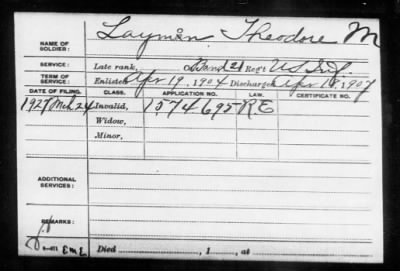 Layman Theodore M
NAME OF SOLDIER:
SERVICE: Late rank, Co Band 21 Reg't U.S. Inf.
TERM OF SERVICE: Enlisted Apr 19, 1904 Discharged Apr 18, 1907
DATE OF FILING. CLASS. APPLICATION NO. LAW. CERTIFICATE NO.
1927 Mch 24 Invalid, 1574695 R.E
Widow,
Minor,
ADDITIONAL SERVICES:
REMARKS:
Died , 1 , at